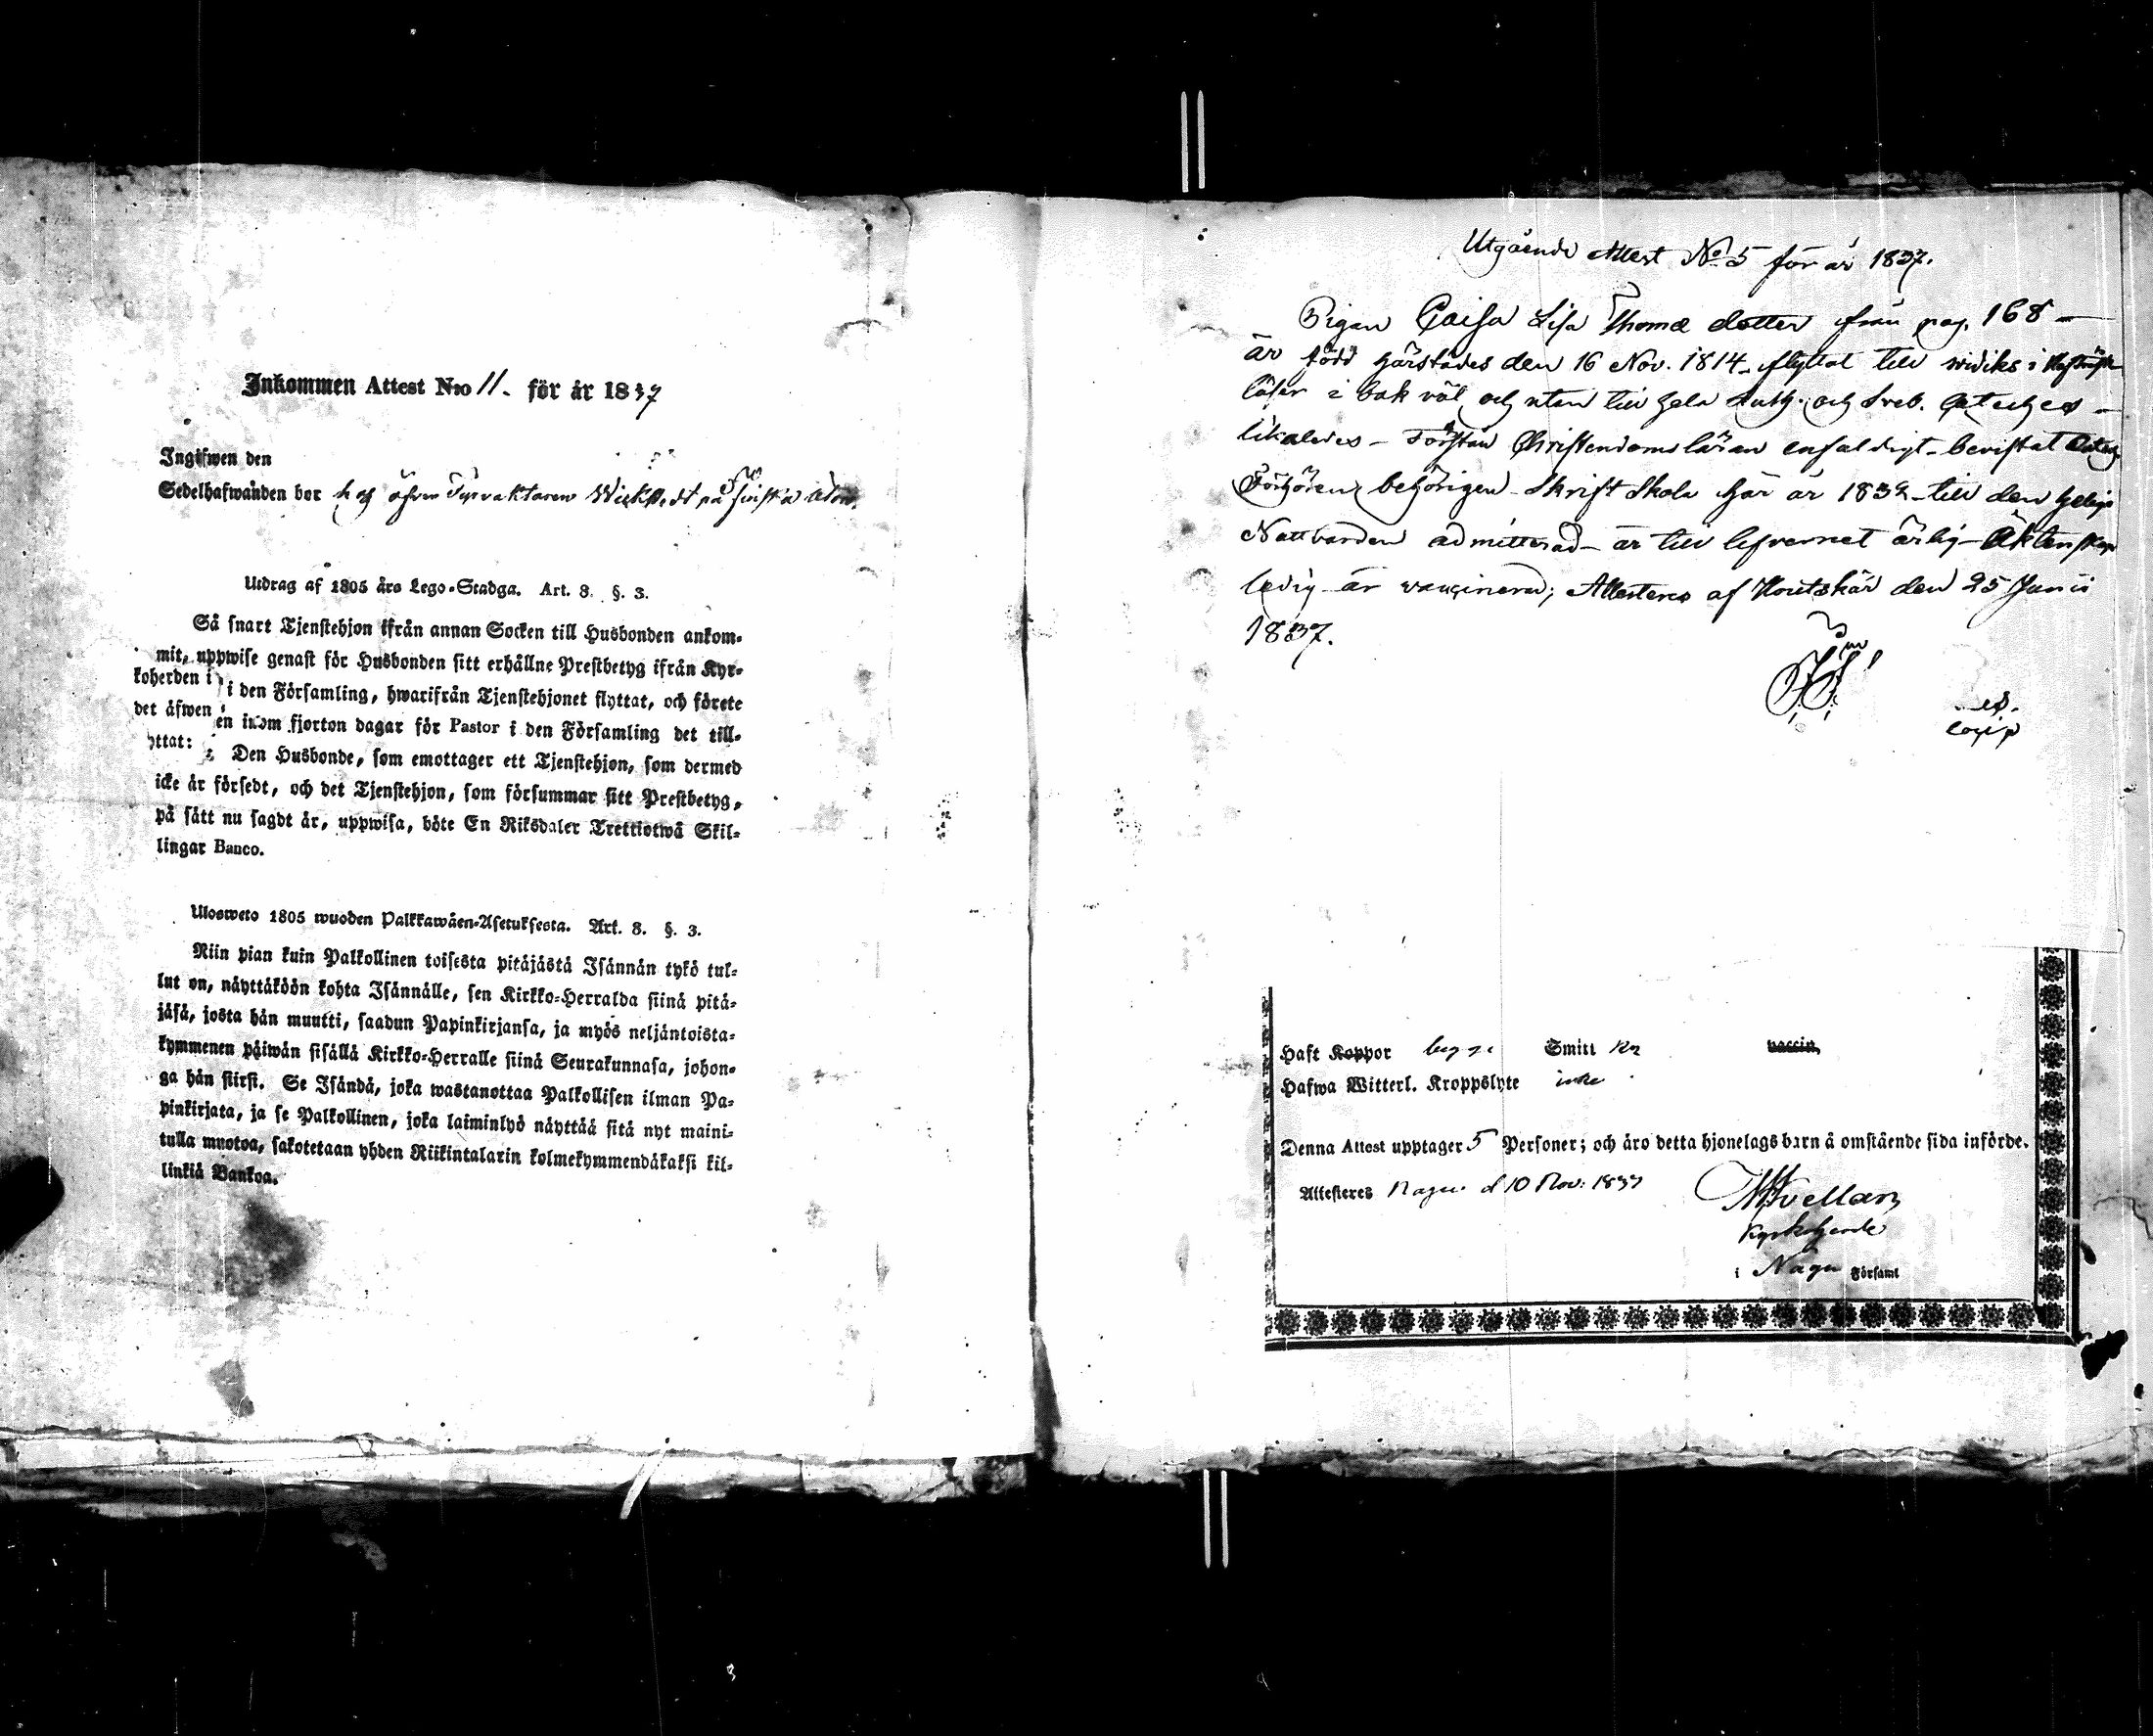 Inkommen Attest N:o 11. för år 1837
Ingifwen den
Sedelhafwanden bor hos öfver Fyrvaktaren
Utdrag af 1805 års Lego-Stadga. Art. 8. §. 3.
Så snart Tjenstehjon ifrån annan Socken till Husbonden ankom-
mit, uppwise genast för Husbonden sitt erhållne Prestbetyg ifrån Kyr-
koherden i i den Församling, hwarifrån Tjenstehjonet flyttat, och förete
det äfwen en inom fjorton dagar för Pastor i den Församling det till-
yttat: Den Husbonde, som emottager ett Tjenstehjon, som dermed
icke är försedt, och det Tjenstehjon, som försummar sitt Prestbetyg,
på sätt nu sagdt är, uppwisa, böte En Riksdaler Trettiotwå Skil-
lingar Banco.
Ulosweto 1805 wuoden Palkkawäen-Asetuksesta. Art. 8. §. 3.
Niin pian kuin Palkollinen toisesta pitäjästä Isännän tykö tul-
lut on, näyttäköön kohta Isännälle, sen Kirkko-Herralda siinä pitä-
jäsä, josta hän muutti, saadun Papinkirjansa, ja myös neljäntoista-
kymmenen päiwän sisällä Kirkko-Herralle siinä Seurakunnasa, johon-
ga hän siirsi. Se Isändä, joka wastanottaa Palkollisen ilman Pa-
pinkirjata, ja se Palkollinen, joka laiminlyö näyttää sitä nyt maini-
tulla muotoa, sakotetaan yhden Riikintalarin kolmekymmendäkaksi kil-
linkiä Bankoa.
Utgående Attest No 5 för år 1837.
Pigan Caisa Lisa Thomæ dotter ifrån pag. 168 —
är född härstädes den 16 Nov. 1814 - flyttat till widiks i
läser i bok väl och utan till hela Luth. och Sveb. Cateches —
likaledes - Förstår Christendomsläran enfaldigt - bevistat
Förhören behörigen - Skrift Skola här år 1832 - till den helige
Nattvarden admitterad - är till lefvernet ärlig - Äktenskap
ledig - är vaccinerad; Attesteras af Houtskär den 25 Junii
1837.
Haft Koppor begge Smitt Kp vaccin,
Hafwa Witterl. Kroppslyte inte
Denna Attest upptager 5 Personer; och äro detta hjonelags barn å omstående sida införde.
Attesteres Nagu d 10 Nov: 1837
Kyrkoherde
i Nagu Församl